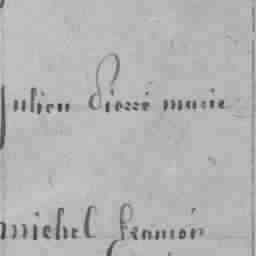 Julien Pierre marie
michel francois